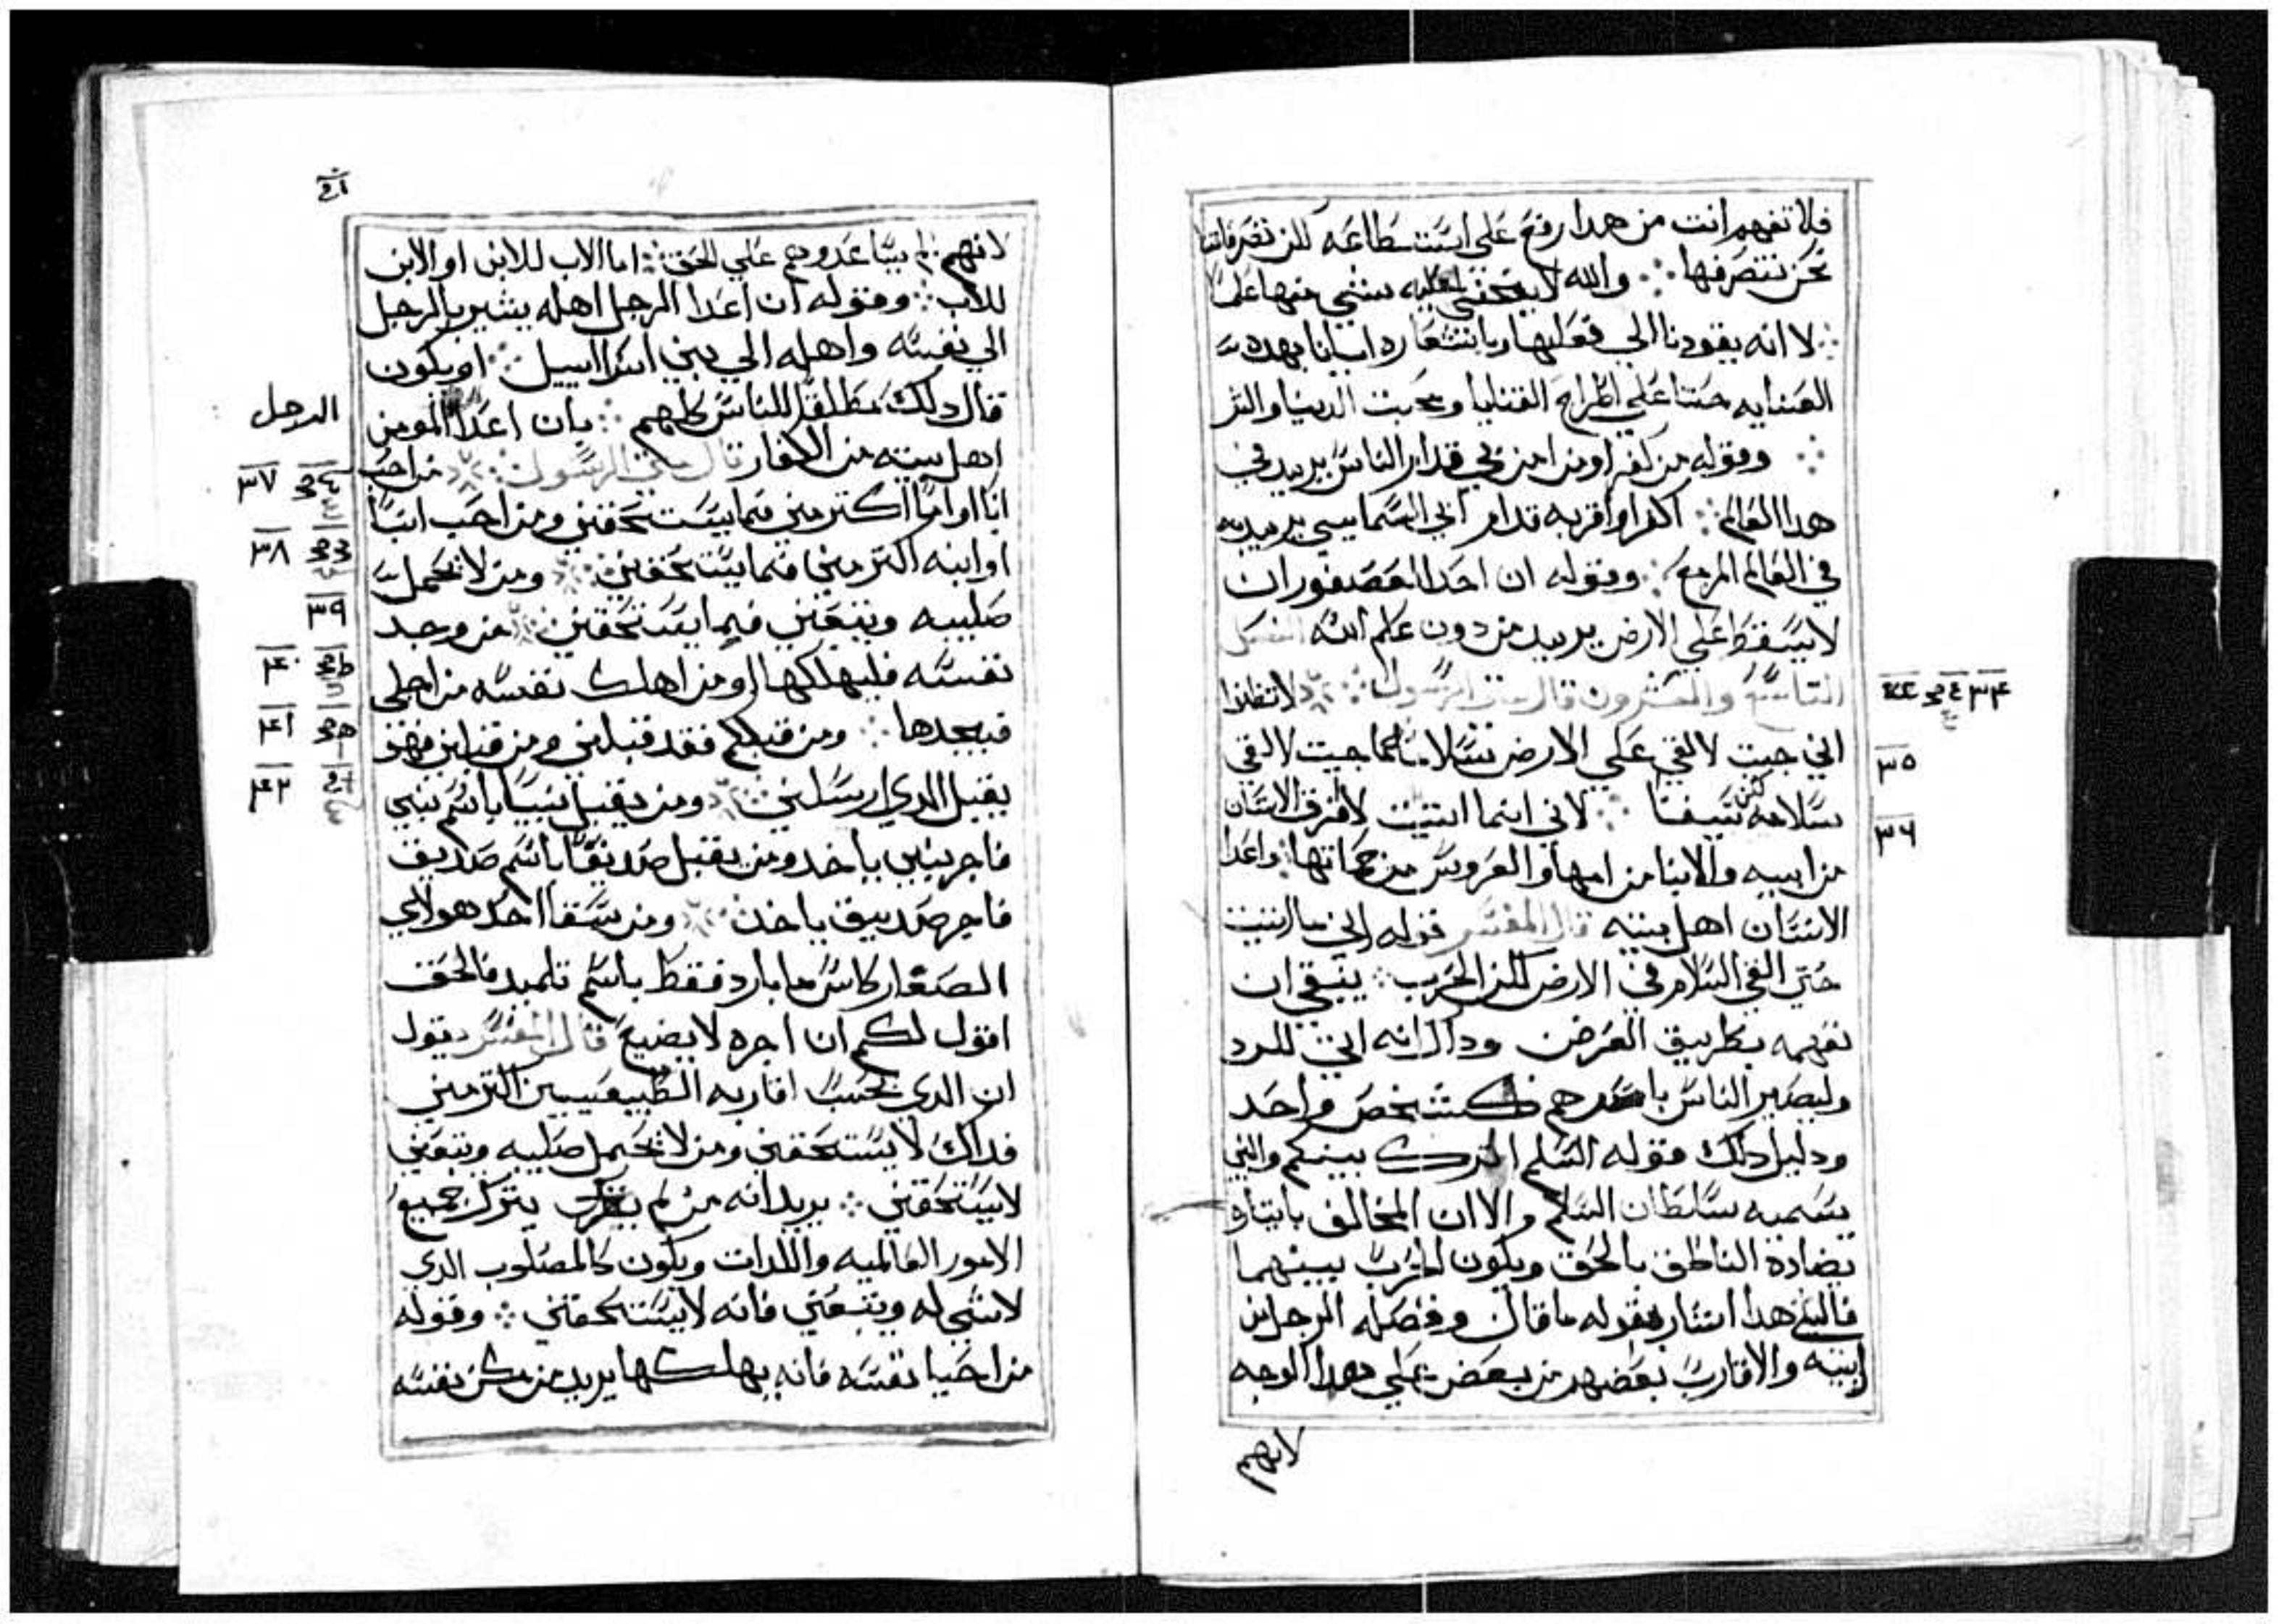 فلا تفهم انت من هدا رفع علي استسطاعه لكن تصرفاتنا
نحن نتصرفها ∴ والله لا يختفي عليه شي منها علما
∴ لا انه يقودنا الي فعليها ربا نتشعا
العنايه حتنا علي اطراح القنايا ومحبت الدنيا والتر
∴ وقوله من كفر او من امن بي قدام الناس يريد في
هدا العالم ∴ اكفر او اقر به قدام ابي السمايي يريد به
في العالم المزمع ∴ وقوله ان احدا العصفوران
لا يسقط علي الارض يريد من دون علم الله الفصل
التاسع والعشرون قال متي الرسول ∴ لا تظنوا
٣٤
اني جيت لالقي علي الارض سلاما ما جيت لالقي
٣٥
سلامه لكن سيفا ∴ لاني انما اتيت لافرق الانسان
٣٦
من ابيه والابنا من امها والعروس من حماتها واعدا
الانسان اهل بيته قال المفسر قوله اني ما اتيت
حتي القي السلام في الارض لكن الحرب ∴ ينبغي ان
نفهمه بطريق العرض وداك انه اتي للرد
وليصير الناس باسرهم كشخص واحد
ودليل دلك قوله السلم اترك بينكم والنبي
يسميه سلطان السلام والا ان المخالف باينا و
يضادد الناطق بالحق ويكون الحرب بينهما
فالي هدا اشار بقوله ما قال وفصله الرجل من
ابنه والاقارب بعضهم من بعض علي هدا الوجه
لانهم
لانهم لم يساعدوهم علي الحق ∴ اما الاب للابن او الابن
للاب ∴ وقوله ان اعدا الرجل اهله يشير بالرجل
الي نفسه واهله الي بني اسراييل ∴ او يكون
قال دلك مطلقا للناس كلهم ∴ بان اعدا المومن
الرجل
اهل بيته من الكفار قال متي الرسول ∴ من احب
٣٧
ابا او اما اكتر مني فما يستحقني ومن احب ابنا
٣٨
او ابنه اكتر مني فما يستحقني ∴ ومن لا يحمل
٣٩
صليبه ويتبعني فما يستحقني ∴ من وجد
٤٠
نفسه فليهلكها ومن اهلك نفسه من اجلي
٤١
فيجدها ∴ ومن قبلكم فقد قبلني ومن قبلني فهو
٤٢
يقبل الدي ارسلني ∴ ومن يقبل نبيا باسم نبي
فاجر نبي ياخد ومن يقبل صديقا باسم صديق
فاجر صديق ياخد ∴ ومن سقا احد هولاي
الصغار كاس ما بارد فقط باسم تلميد فالحق
اقول لكم ان اجره لا يضيع قال المفسر يقول
ان الدي يحب اقاربه الطبيعيين اكتر مني
فداك لا يستحقني ومن لا يحمل صليبه ويتبعني
لا يستحقني ∴ يريد انه من لم يترك جميع
الامور العالميه واللدات ويكون كالمصلوب الدي
لا شي له ويتبعني فانه لا يستحقني ∴ وقوله
من احيا نفسه فانه يهلكها يريد من مكن نفسه